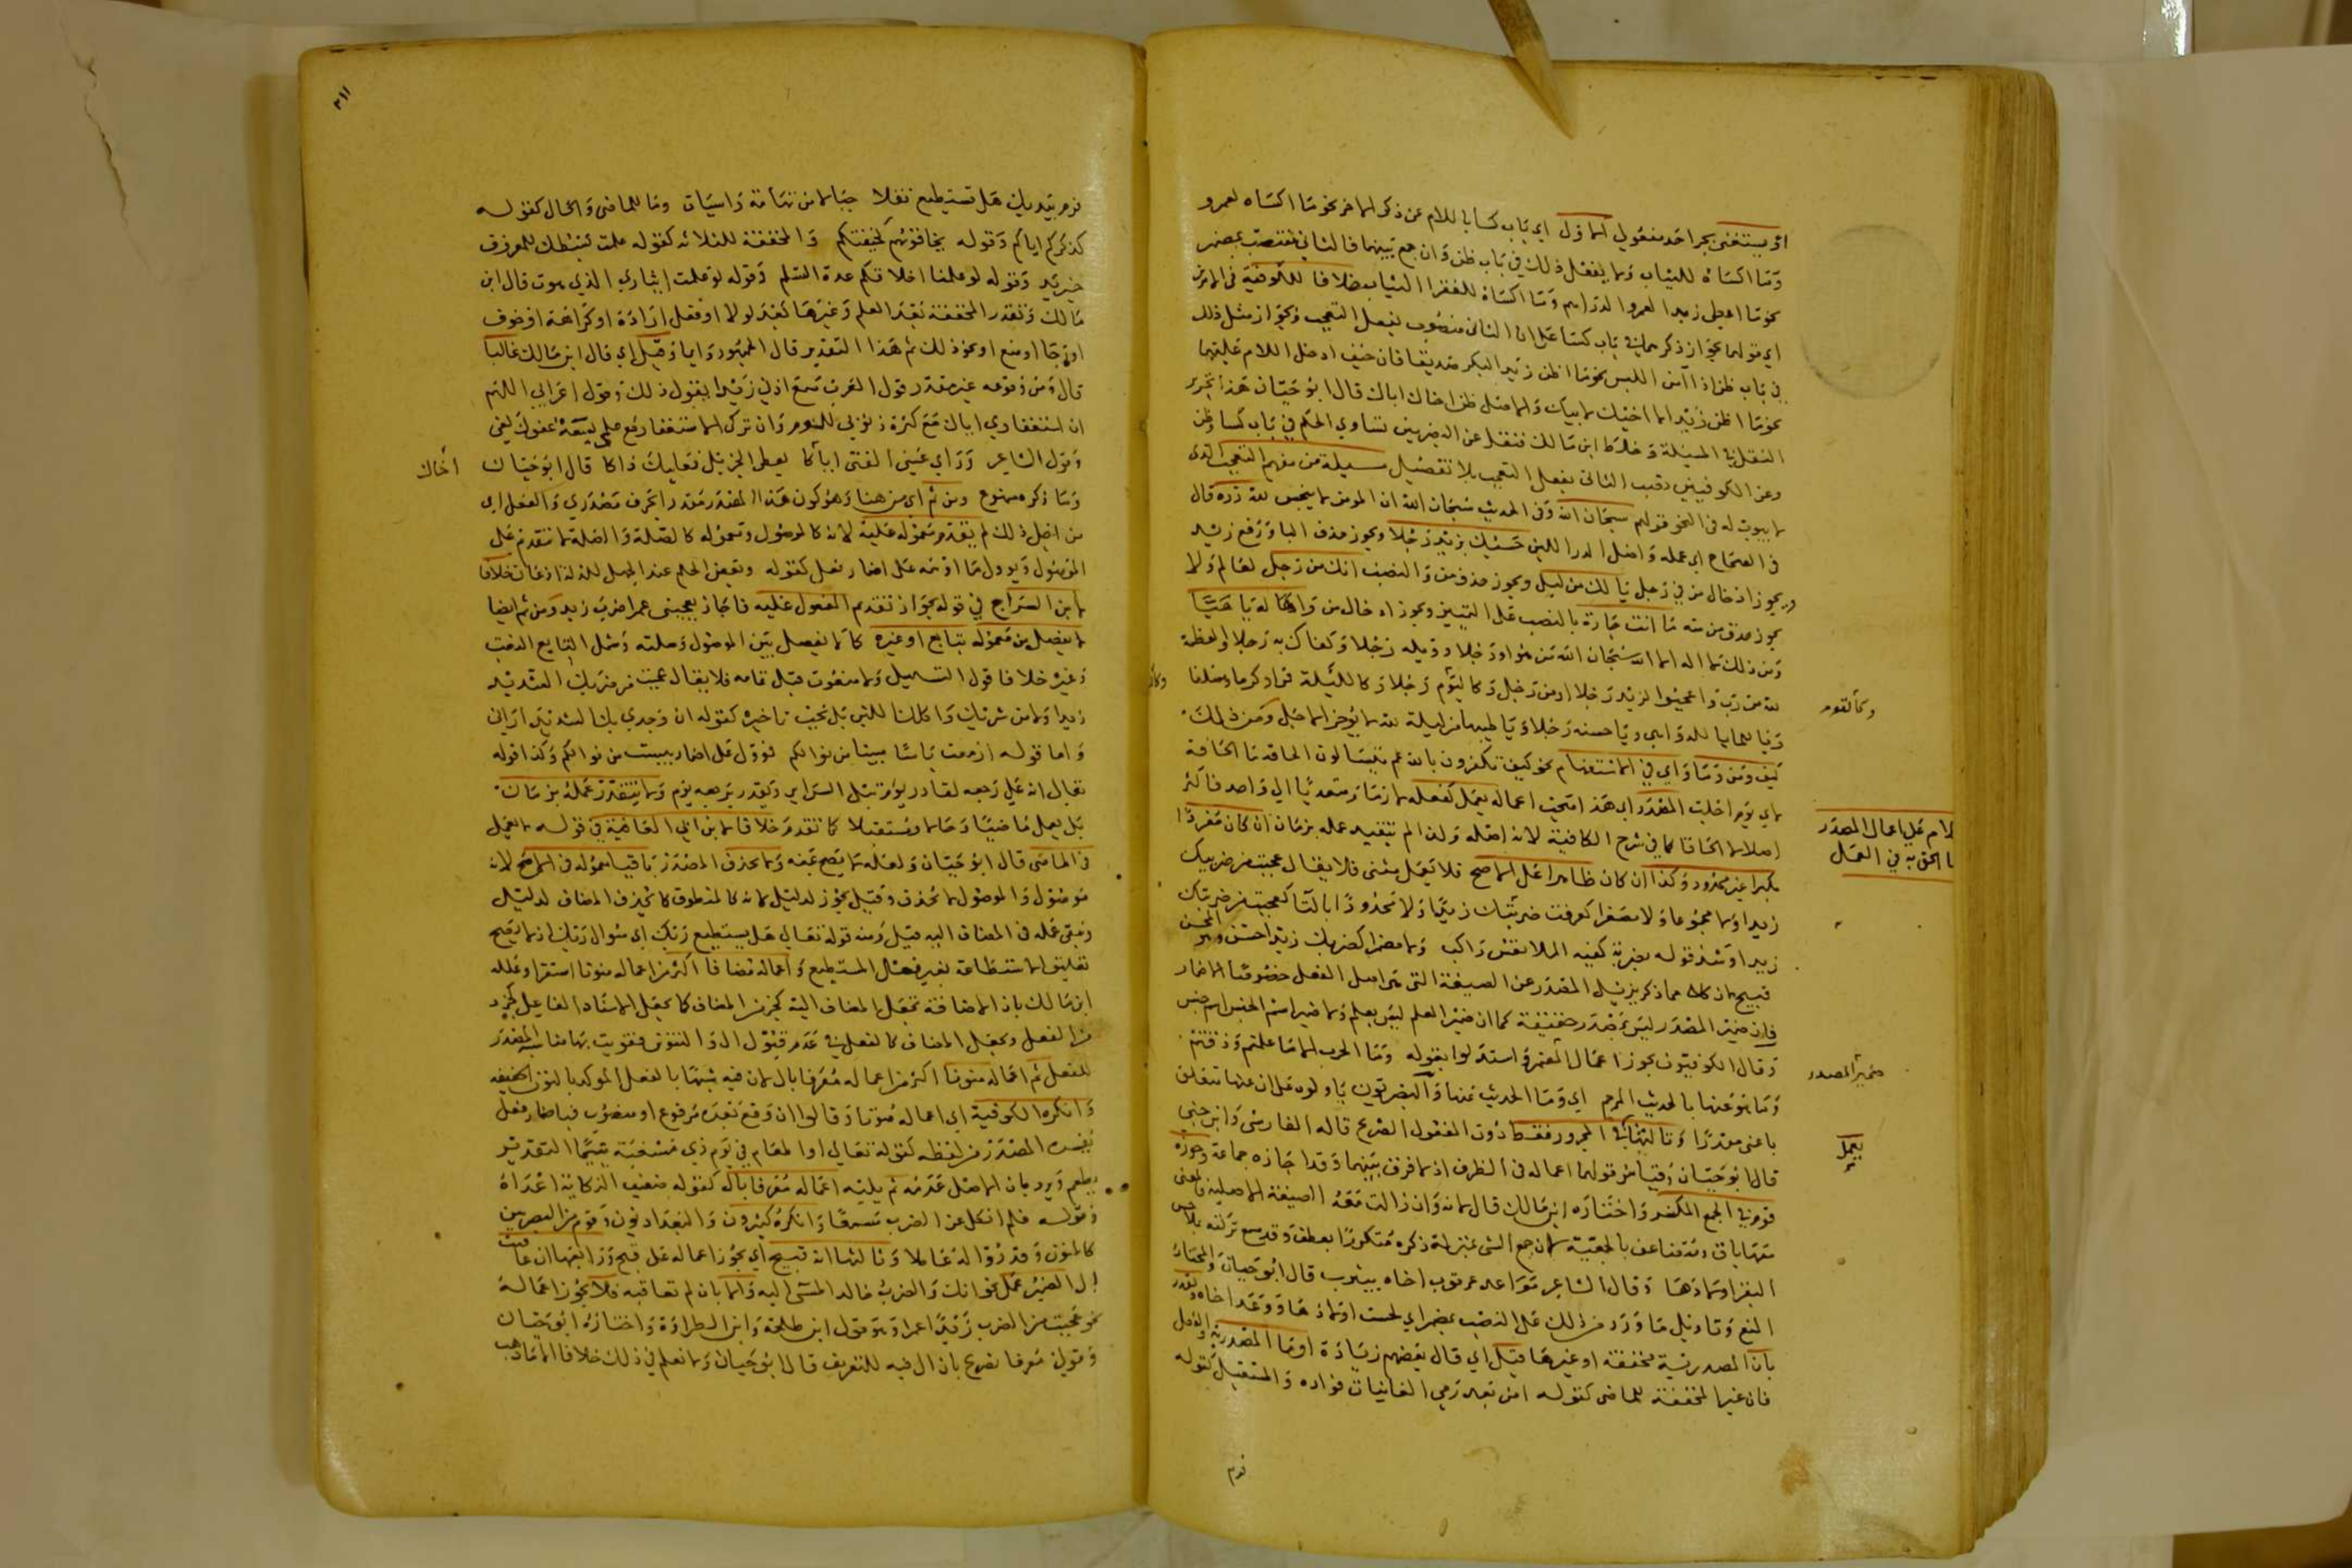 او يستغنى بجر احد مفعولي الاول اي باب كسا باللام عن ذكر الاخر نحو ما اكساه لعمرو
وما اكساه للثياب ولا يفعل ذلك في باب ظن وان جمع بينهما فالثاني منتصب بمضمر
نحو ما اعطى زيدا لعمرو الدراهم وما اكساه للفقرا الثياب خلافا للكوفية في الامرين
اي قولهم بجواز ذكرهما في باب كسا على ان الثاني منصوب بفعل التعجب وبجواز مثل ذلك
في باب ظن اذا امن اللبس نحو ما اظن زيدا لبكر صديقا فان خيف ادخل اللام عليهما
نحو ما اظن زيدا لاخيك لابيك والاصل ظن اخاك اباك قال ابو حيان هذا تحرير
النقل في المسئلة وخلط ابن مالك فنقل عن البصريين تساوي الحكم في باب كسا وظن
وعن الكوفيين نصب الثاني بفعل التعجب بلا تفصيل مسئلة من مفهم التعجب الذي
لا يبوب له في النحو قولهم سبحان الله وفي الحديث سبحان الله ان المومن لا ينجس لله دره قال
في الصحاح اي عمله واصل الدر اللبن حسبك بزيد رجلا ويجوز حذف الباء ورفع زيد
ويجوز ادخال من في رجل يا لك من ليل ويجوز حذف من والنصب انك من رجل لعالم ولا
يجوز حذف من منه ما انت جارة بالنصب على التمييز ويجوز ادخال من واها له يا هيا
ومن ذلك لا اله الا الله سبحان الله من هو او رجلا وويله رجلا وكفاك به رجلا والعظمة
لله من رب واعجبوا لزيد رجلا او من رجل وكاليوم رجلا وكالليلة قمرا وكرما وصلفا
ويا للمايا للدواهي ويا حسنه رجلا ويا طيبها من ليلة لله لا يؤخر الاجل ومن ذلك
كيف ومن وما واي في الاستفهام نحو كيف تكفرون بالله عم يتسالون الحاقة ما الحاقة
لاي يوم اجلت المصدر اي هذا مبحث اعماله يعمل كفعله لازما ومتعديا الى واحد فاكثر
اصلا لا الحاقا لما في شرح الكافية لانه اصله ولذا لم يتقيد عمله بزمان ان كان مفردا
مكبرا غير محدود وكذا ان كان ظاهرا على الاصح فلا يعمل مثنى فلا يقال عجبت من ضربيك
زيدا ولا مجموعا ولا مصغرا كعرفت ضريبك زيدا ولا محدودا بالتا كعجبت من ضربتك
زيدا وشذ قوله بضربة كفيه الملا نفس راكب ولا مضمرا كضربك زيدا حسن وهو المحسن
قبيح لان كلا مما ذكر يزيل المصدر عن الصيغة التي هي اصل الفعل خصوصا الاضمار
فان ضمير المصدر ليس بمصدر حقيقة كما ان ضمير العلم ليس بعلم ولا ضمير اسم الجنس اسم جنس
وقال الكوفيون يجوز اعمال المضمر واستدلوا بقوله وما الحرب الا ما علمتم وذقتم
وما هو عنها بالحديث المرجم اي وما الحديث عنها والبصريون ياولونه على ان عنها متعلق
باعنى مقدرا وثالثها في المجرور فقط دون المفعول الصريح قاله الفارسي وابن جني
قال ابو حيان وقياس قولهما اعماله في الظرف اذ لا فرق بينهما وقد اجازه جماعة وجوزه
قوم في الجمع المكسر واختاره ابن مالك قال لانه وان زالت معه الصيغة الاصلية فالمعنى
معها باق ومتضاعف بالجمعية لان جمع الشي بمنزلة ذكره متكررا بعطف وقد سمع تركته بملاحس
البقر اولادها وقال الشاعر مواعد عرقوب اخاه بيثرب قال ابو حيان والمختار
المنع وتاويل ما ورد من ذلك على النصب بمضمر اي لحست اولادها ووعد اخاه ويقدر
بان المصدرية مخففة او غيرها قيل اي قال بعضهم زيادة او ما المصدرية والفعل
فان غير المخففة للماضي كقوله امن بعد رمي الغانيات فواده والمستقبل كقوله
وكاليوم
الكلام على اعمال المصدر
وما الحق به في العمل
ضمير المصدر
يعمل
فرم
٢١١
فرم بيديك هل تستطيع نقلا جبالا من تهامة راسيات وما للماضي والحال كقوله
كذكركم اباكم وقوله تخافونهم كخيفتكم والمخففة للثلاثة كقوله علمت بسطك للمعروف
خير يد وقوله لو علمنا اخلافكم عدة السلم وقوله لو علمت ايثاري الذي هوت قال ابن
مالك وتقدر المخففة بعد العلم وغيرها بعد لولا او فعل ارادة او كراهة او خوف
او رجا او منع او نحو ذلك ثم هذا التقدير قال الجمهور دايما وقيل اي قال ابن مالك غالبا
قال ومن وقوعه غير مقدر قول العرب سمع اذني زيدا يقول ذلك وقول اعرابي اللهم
ان استغفاري اياك مع كثرة ذنوبي للؤم وان تركي الاستغفار مع علمي بسعة عفوك لغي
وقول الشاعر وراي عيني الفتى اباكا يعطي الجزيل فعليك ذاكا قال ابو حيان
وما ذكره ممنوع ومن ثم اي من هنا وهو كون هذا المصدر مقدرا بحرف مصدري والفعل اي
من اجل ذلك لم يتقدم معموله عليه لانه كالموصول ومعموله كالصلة والصلة لا تتقدم على
الموصول ويوول ما اوهمه على اضمار فعل كقوله وبعض الحلم عند الجهل للذلة اذعان خلافا
لابن السراج في قوله بجواز تقديم المفعول عليه فاجاز يعجبني عمرا ضرب زيد ومن ثم ايضا
لا يفصل من معموله بتابع او غيره كما لا يفصل بين الموصول وصلته ومثل التابع النعت
وغيره خلافا قول التسهيل ولا منعوت قبل تمامه فلا يقال عجبت من ضربك الشديد
زيدا ولا من شربك واكلك اللبن بل يجب تاخيره كقوله ان وجدي بك الشديد اراني
واما قوله ازمعت ياسا مبينا من نوالكم فؤول على اضمار يئست من نوالكم وكذا قوله
تعالى انه على رجعه لقادر يوم تبلى السراير ويقدر يرجعه يوم ولا يتقدر عمله بزمان
بل يعمل ماضيا وحالا ومستقبلا كما تقدم خلافا لابن ابي العافية في قوله لا يعمل
في الماضي قال ابو حيان ولعله لا يصح عنه ولا يحذف المصدر باقيا معموله في الاصح لانه
موصول والموصول لا يحذف وقيل يجوز لدليل لانه كالمنطوق كما يحذف المضاف لدليل
ويبقى عمله في المضاف اليه قيل ومنه قوله تعالى هل يستطيع ربك اي سؤال ربك اذ لا يصح
تعليق الاستطاعة بغير فعل المستطيع واعماله مضافا اكثر من اعماله منونا استقرا وعلله
ابن مالك بان الاضافة تجعل المضاف اليه كجزء من المضاف كما يجعل الاسناد الفاعل كجزء
من الفعل ويجعل المضاف كالفعل في عدم قبول ال والتنوين فقويت بها مناسبة المصدر
للفعل ثم اعماله منونا اكثر من اعماله معرفا بال لان فيه شبها بالفعل الموكد بالنون الخفيفه
وانكره الكوفية اي اعماله منونا وقالوا ان وقع بعده مرفوع او منصوب فباضمار فعل
يفسره المصدر من لفظه كقوله تعالى او اطعام في يوم ذي مسغبة يتيما التقدير
يطعم ويرد بان الاصل عدمه ثم يليه اعماله معرفا بال كقوله ضعيف النكاية اعداه
وقوله فلم انكل عن الضرب مسمعا وانكره كثيرون والبغداديون وقوم من البصريين
كالمنون وقدروا له عاملا وثالثها انه قبيح اي يجوز اعماله على قبح ورابعها ان عاقبت
ال الضمير عمل نحو انك والضرب خالدا لمسئ اليه والا بان لم تعاقبه فلا يجوز اعماله
نحو عجبت من الضرب زيدا عمرا وهو قول ابن طلحة وابن الطراوة واختاره ابو حيان
وقولي معرفا تصريح بان ال فيه للتعريف قال ابو حيان ولا نعلم في ذلك خلافا الا ما ذهب
اخاك